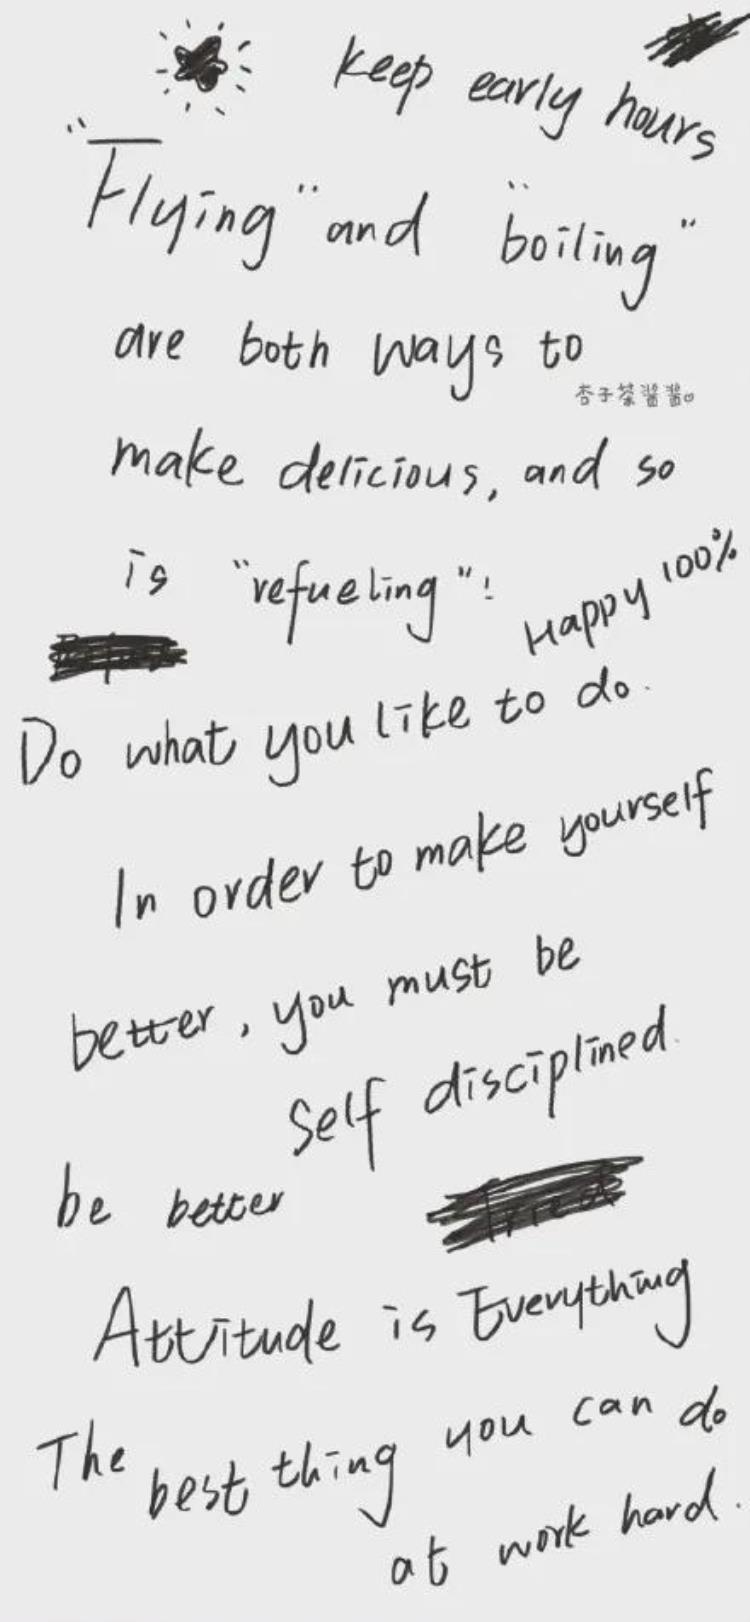 keep early hours
"Flying" and "boiling"
are both ways to
杏子茶酱酱
make delicious, and so
is "refueling"!
Happy 100%
Do what you like to do.
In order to make yourself
better, you must be
Self disciplined.
be better
Attitude is Everything
The best thing you can do
at work hard.